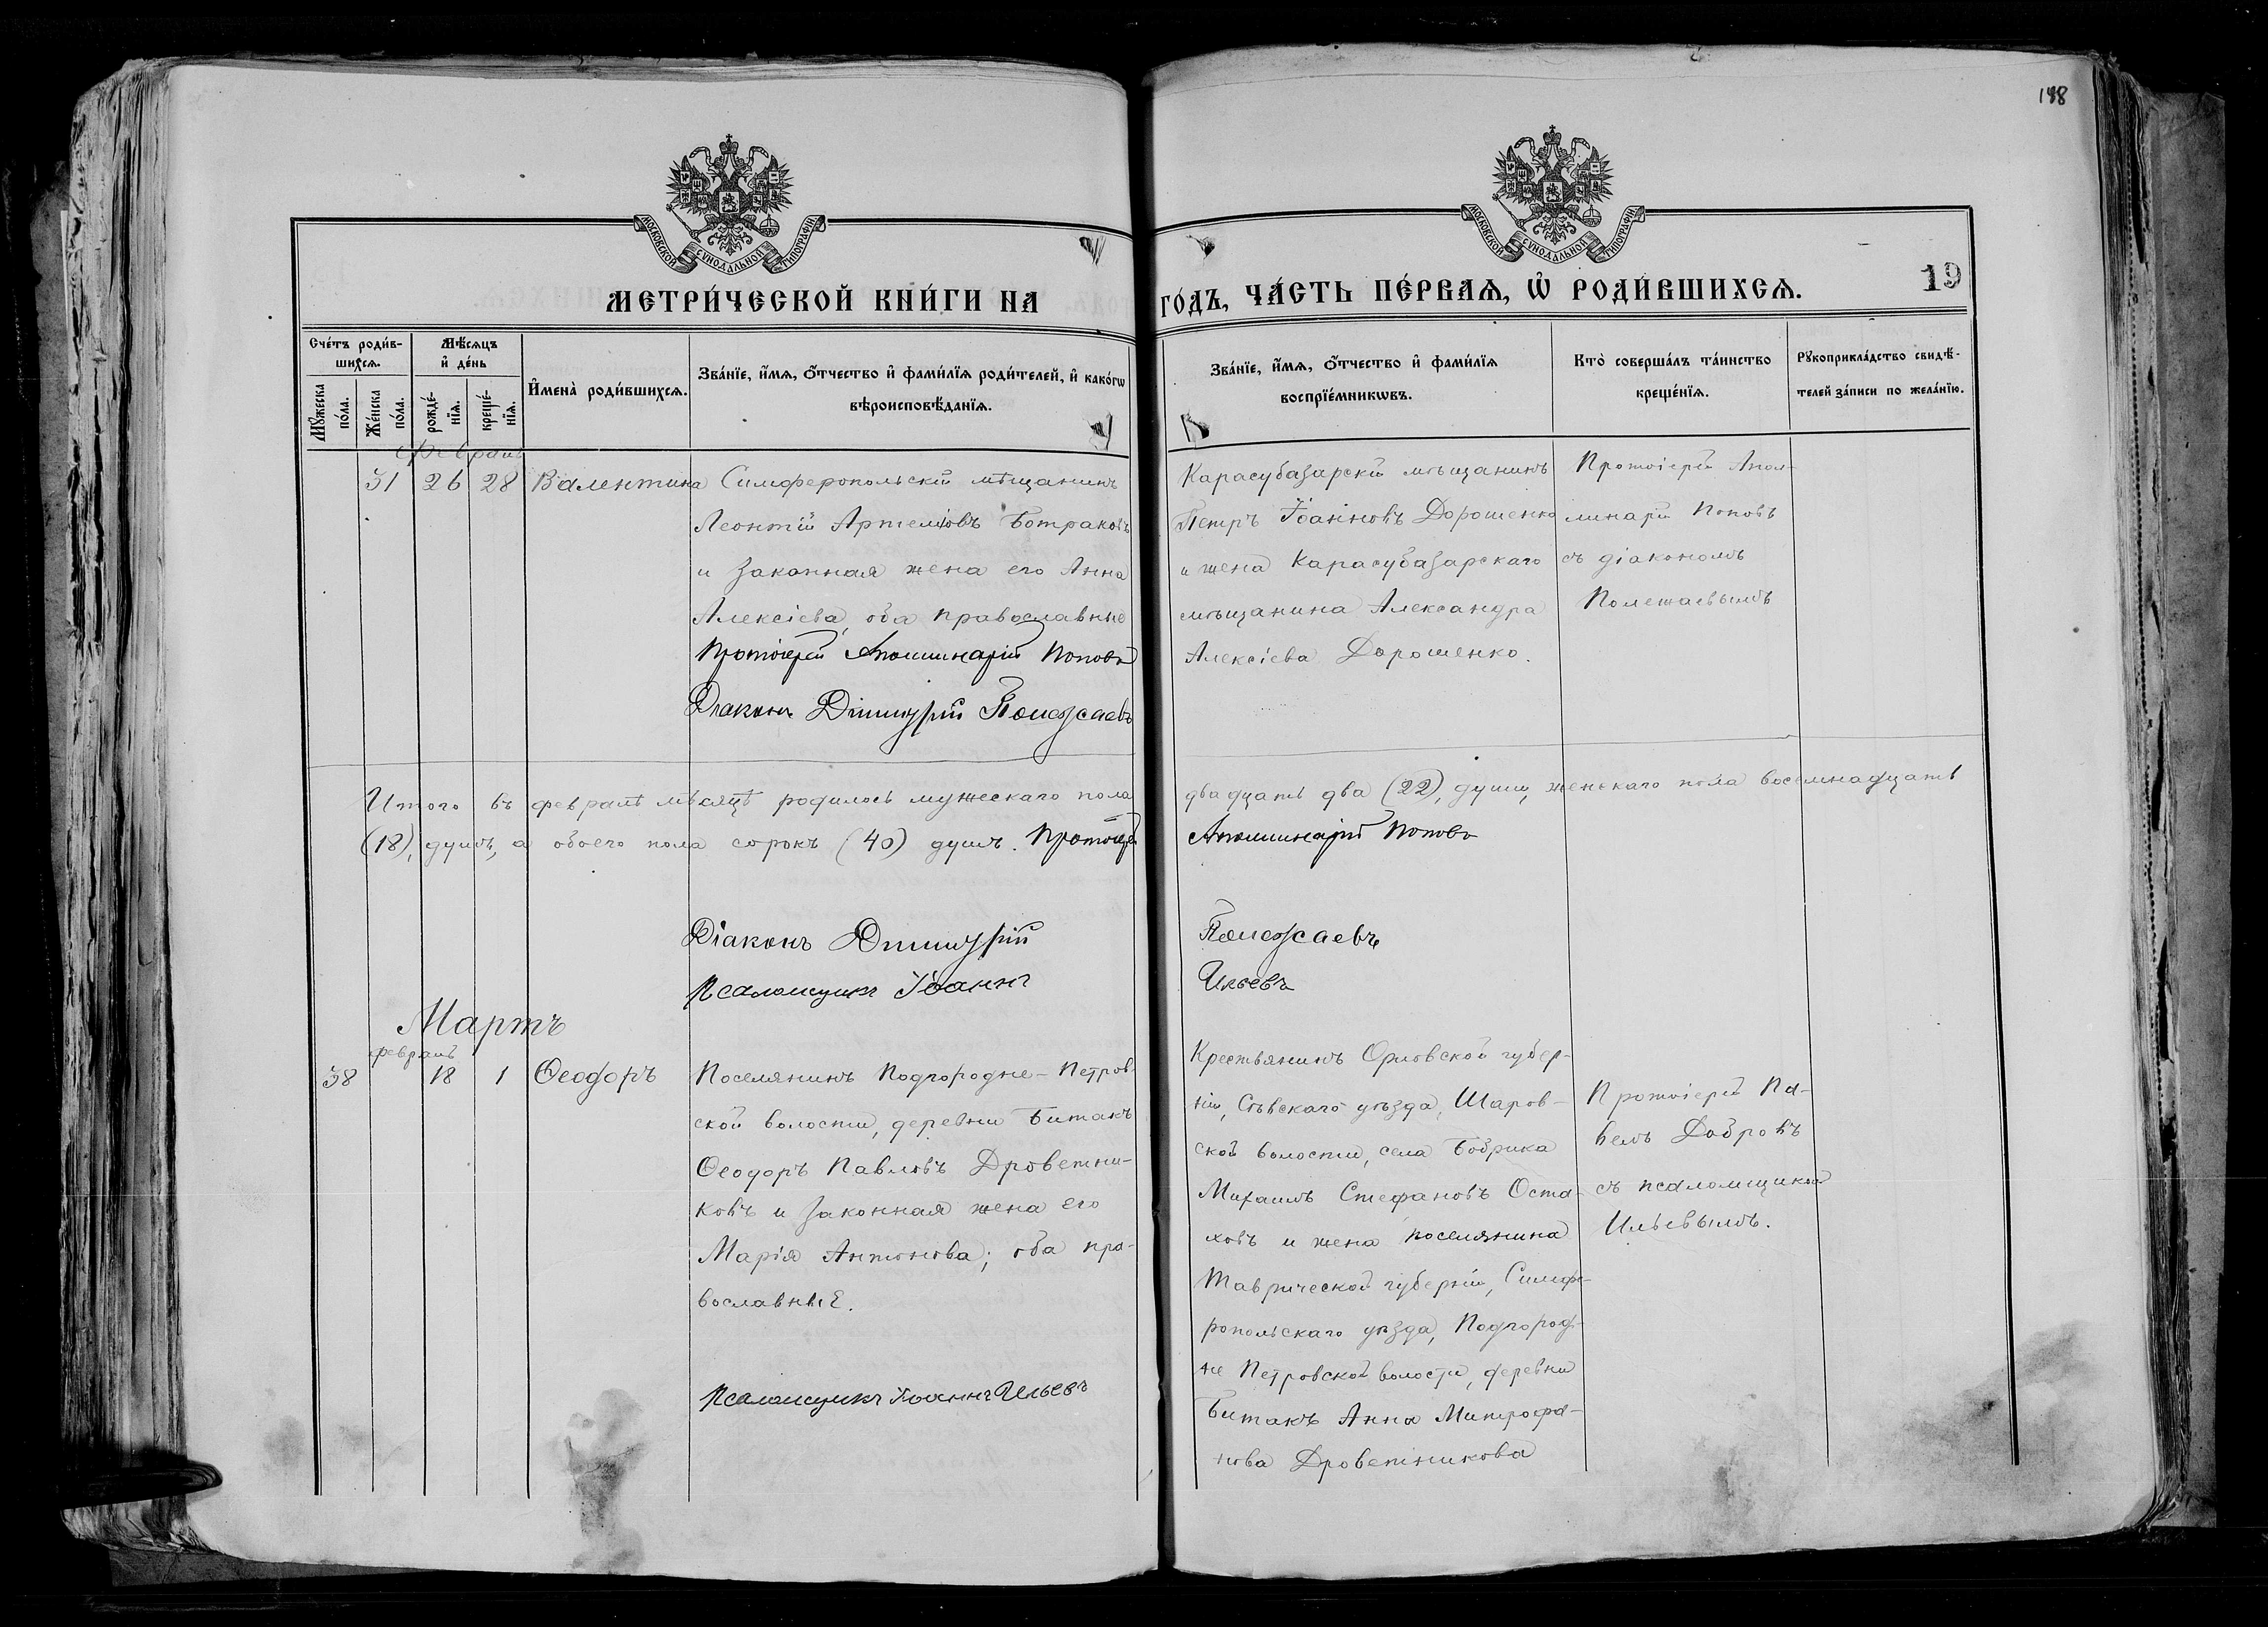 188
МОСКОВСКОЙ СУНОДАЛЬНОЙ ТИПОГРАФІИ
МОСКОВСКОЙ СУНОДАЛЬНОЙ ТИПОГРАФІИ
МЕТРИ́ЧЕСКОЙ КНИ́ГИ НА
ГО́ДЪ, ЧА́СТЬ ПЕ́РВАѦ, Ѡ҆ РОДИ́ВШИХСѦ.
19
Сче́тъ роди́в-
шихсѧ.
Мꙋ́жеска
по́ла.
Же́нска
по́ла.
Мѣ́сяцъ
и҆ де́нь
рожде́-
нїѧ.
креще́-
нїѧ.
И҆мена̀ роди́вшихсѧ.
Зва́нїе, и҆́мѧ, ѻ҆́тчество и҆ фами́лїѧ роди́телей, и҆ како́гѡ
вѣроисповѣ́данїѧ.
Зва́нїе, и҆́мѧ, ѻ҆́тчество и҆ фами́лїѧ
воспрїе́мникѡвъ.
Кто̀ соверша́лъ та́инство
креще́нїѧ.
Рꙋкоприкла́дство свидѣ́-
телей за́писи по жела́нїю.
Февраль
31 26 28 Валентина
Симферопольскій мѣщанинъ
Леонтій Артеміовъ Ботраковъ
и законная жена его Анна
Алексіева, оба православные
Протоіерей Аполлинарій Поповъ
Діаконъ Димитрій Полежаевъ
Карасубазарскій мѣщанинъ
Петръ Іоанновъ Дорошенко
и жена Карасубазарскаго
мѣщанина Александра
Алексіева Дорошенко.
Протоіерей Апол-
линарій Поповъ
съ діакономъ
Полежаевымъ
Итого въ февралѣ мѣсяцѣ родилось мужескаго пола двадцать два (22), души, женскаго пола восемнадцать
(18), душъ, а обоего пола сорокъ (40) душъ. Протоіерей Аполлинарій Поповъ
Діаконъ Димитрій Полежаевъ
Псаломщикъ Іоаннъ Ильевъ
Мартъ
февраль
38 18 1 Ѳеодоръ
Поселянинъ Подгородне-Петров-
ской волости, деревни Битакъ
Ѳеодоръ Павловъ Дроветни-
ковъ и законная жена его
Марія Антонова; оба пра-
вославные.
Псаломщикъ Іоаннъ Ильевъ
Крестьянинъ Орловской губер-
ніи, Сѣвскаго уѣзда, Шаров-
ской волости, села Бобрика
Михаилъ Стефановъ Оста-
ховъ и жена поселянина
Таврической губерніи, Симфе-
ропольскаго уѣзда, Подгород-
не Петровской волости, деревни
Битакъ Анна Митрофа-
нова Дроветникова
Протоіерей Па-
велъ Добровъ
съ псаломщикомъ
Ильевымъ.